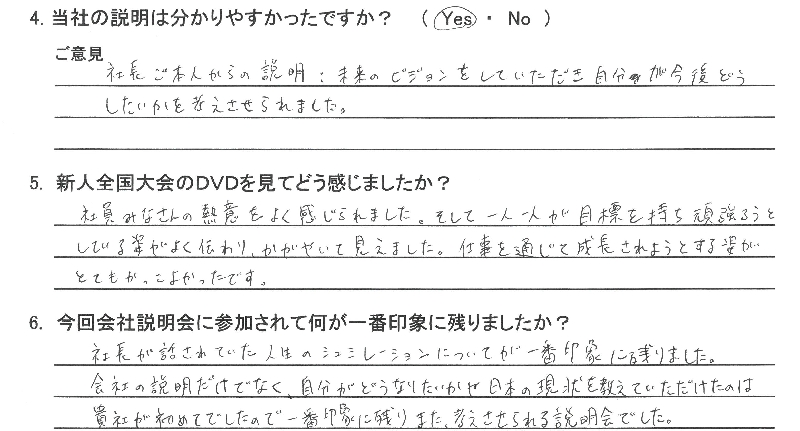 4. 当社の説明は分かりやすかったですか？ （ Yes ・ No ）
ご意見
社長ご本人からの説明：未来のビジョンをしていただき自分が今後どう
したいかを考えさせられました。
5. 新人全国大会のDVDを見てどう感じましたか？
社員みなさんの熱意をよく感じられました。そして一人一人が目標を持ち頑張ろうと
している姿がよく伝わり、かがやいて見えました。仕事を通じて成長されようとする姿が
とてもかっこよかったです。
6. 今回会社説明会に参加されて何が一番印象に残りましたか？
社長が話されていた人生のシュミレーションについてが一番印象に残りました。
会社の説明だけでなく、自分がどうなりたいかや日本の現状を教えていただけたのは
貴社が初めてでしたので一番印象に残りまた、考えさせられる説明会でした。